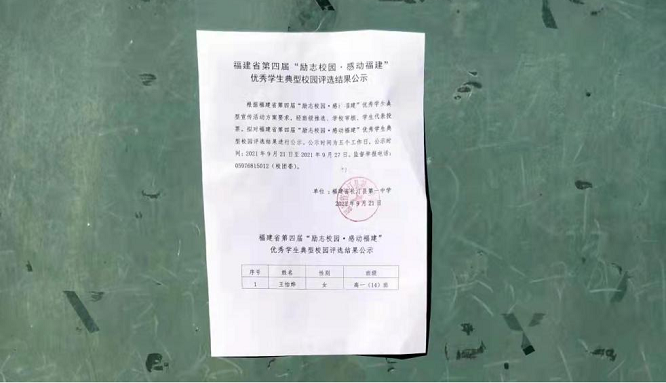 福建省第四届“励志校园·感动福建”
优秀学生典型校园评选结果公示
根据福建省第四届“励志校园·感动福建”优秀学生典
型宣传活动方案要求，经班级推选、学校审核、学生代表投
票，拟对福建省第四届“励志校园·感动福建”优秀学生典
型校园评选结果进行公示，公示时间为五个工作日，公示时
间：2021年9月21日至2021年9月27日，监督举报电话：
05978815012（校团委）。
单位：福建省长汀县第一中学
2021年9月21日
福建省第四届“励志校园·感动福建”
优秀学生典型校园评选结果公示
序号 姓名 性别 班级
1 王 女 高一（14）班